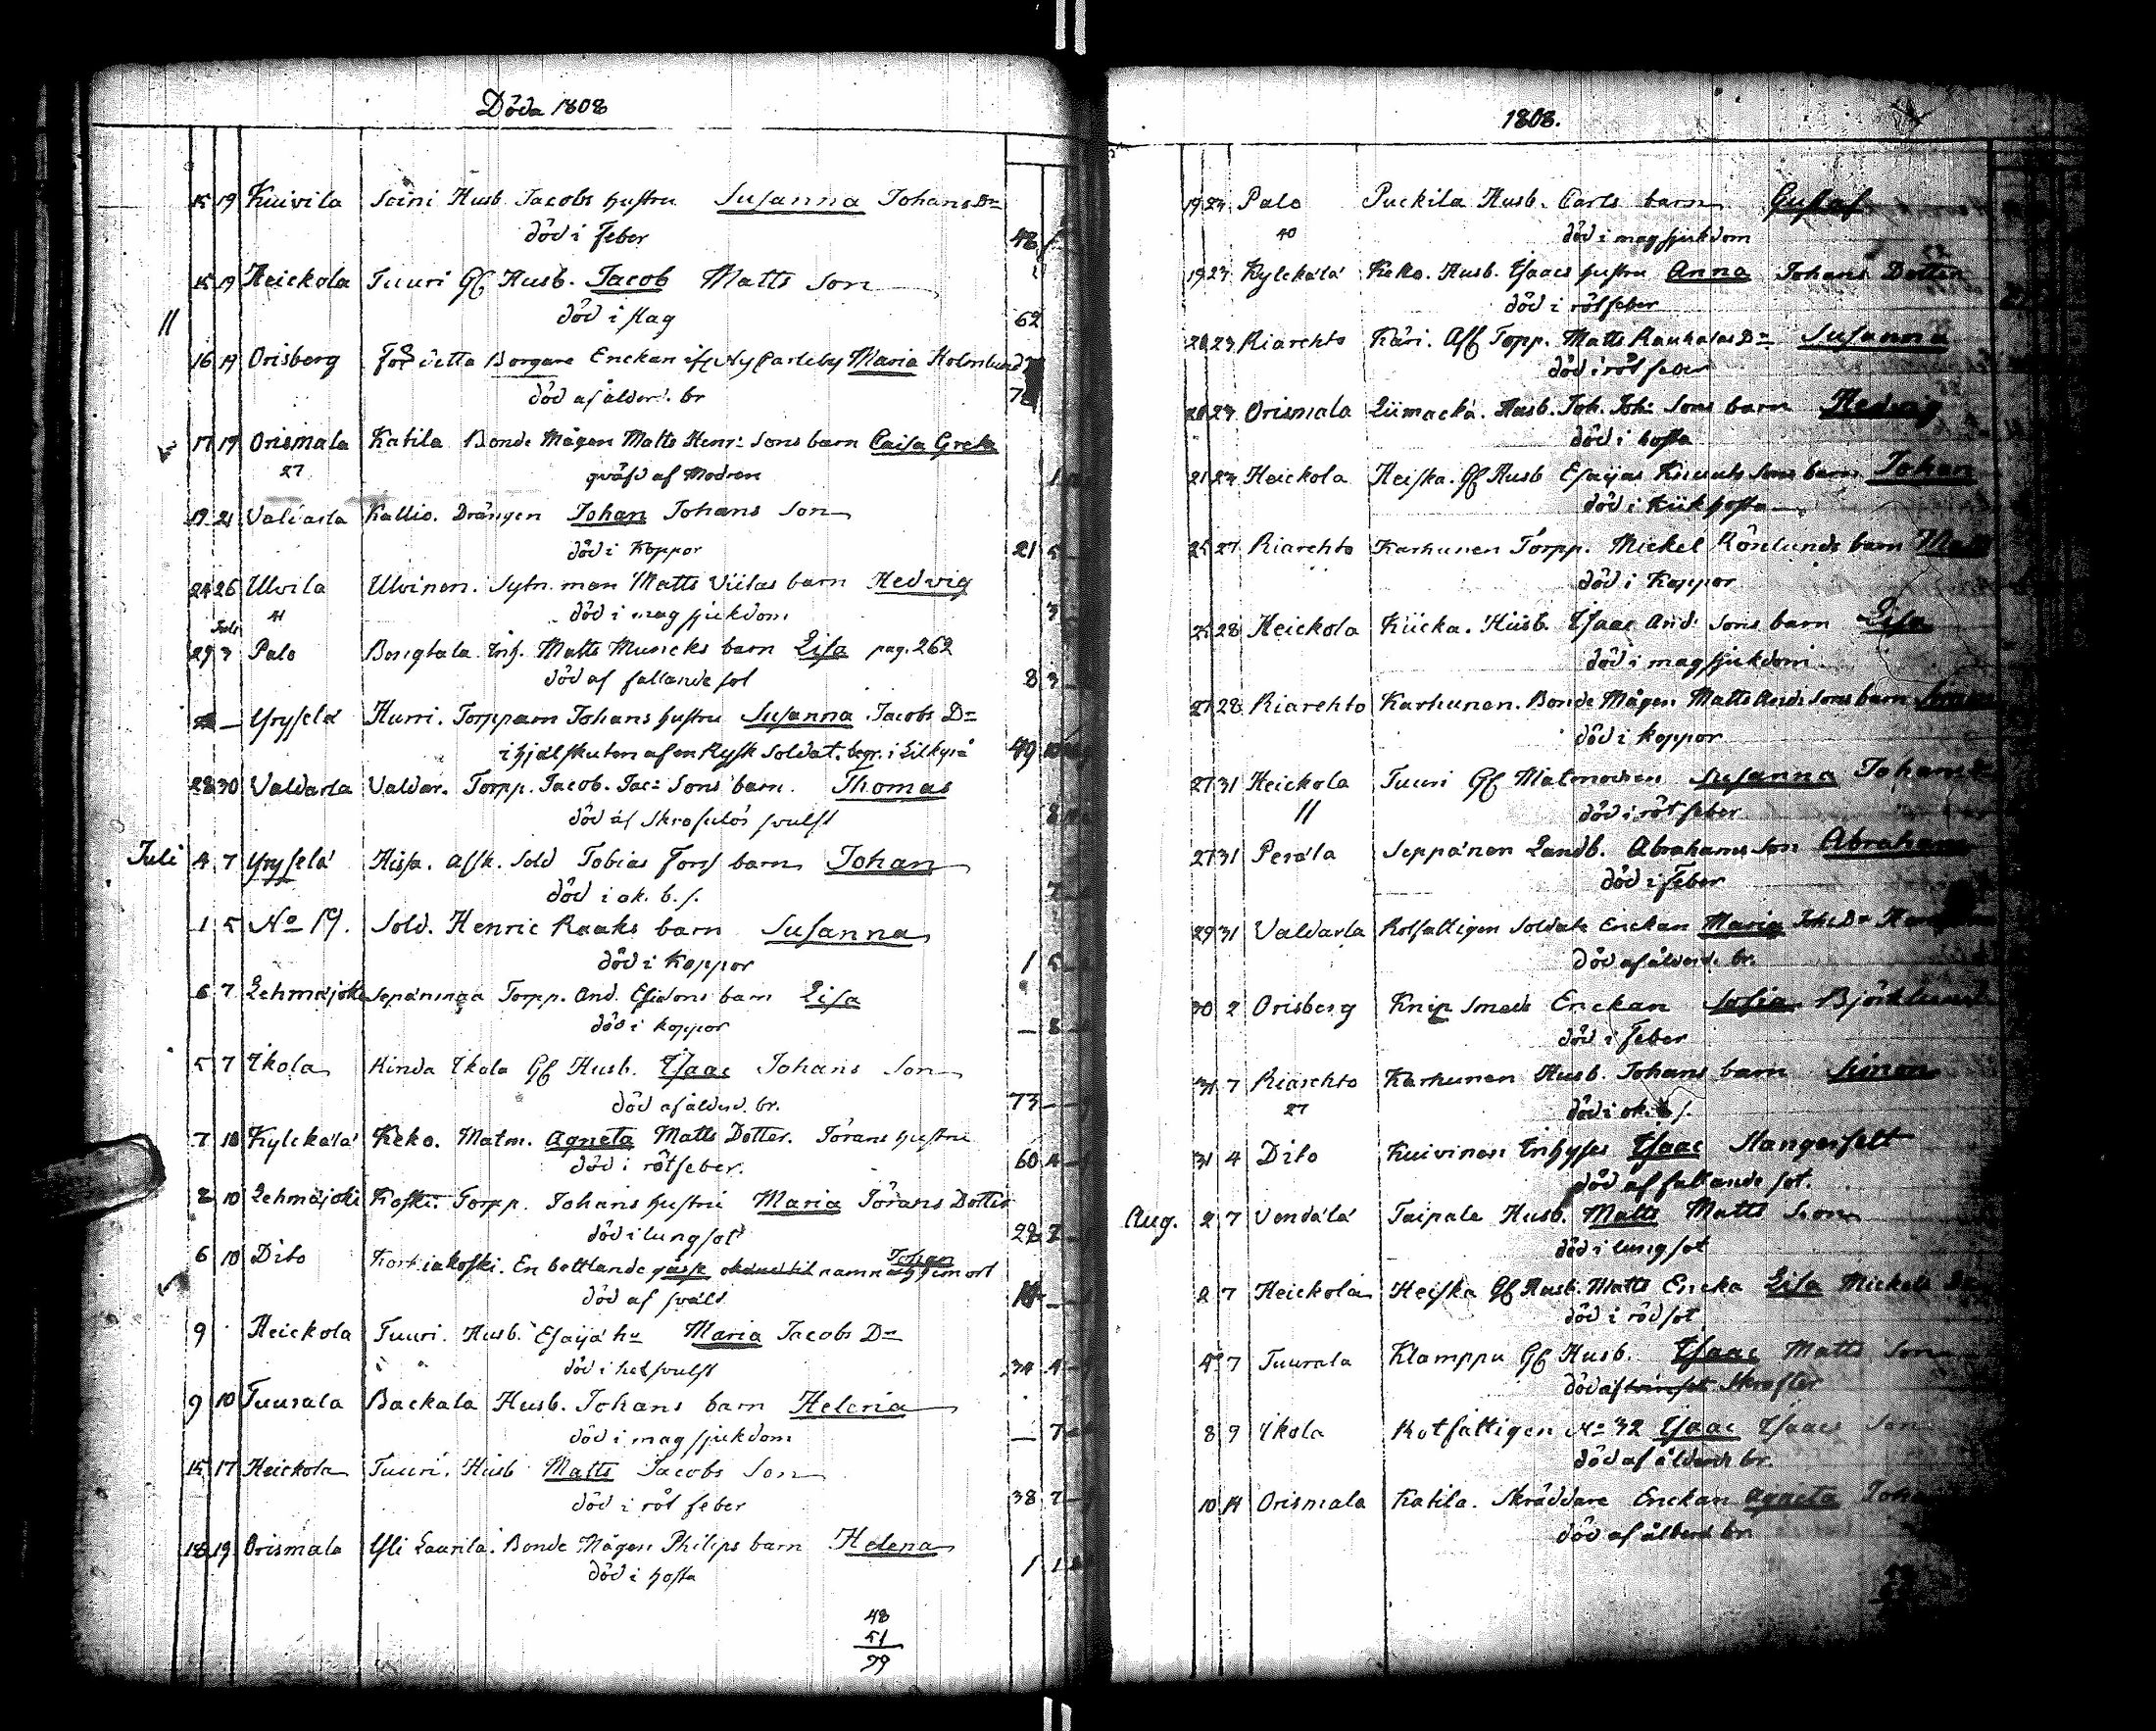 Döda 1808
15 19 Kuivila Soini Husb. Jacobs hustru Susanna Johans Dr
död i Feber 48
15 19 Heickola Tuuri Gf Husb. Jacob Matts Son
död i slag 62
//
16 19 Orisberg För detta Borgare Enckan Ny Carleby Maria Holmlund
död af ålderd. br
17 19 Orismala Katila Bonde Mågen Matts Henr: Sons barn Caisa Greta
27 qväfd af Modren 1
19 21 Valdarla Kallio. Drängen Johan Johans Son
död i Koppor 21 5
24 26 Ulvila Ulvinen. Sytn. man Matts Viitas barn Hedvig
41 död i mag sjukdom 3
Juli
29 3 Palo Bongtala Inh. Matts Muncks barn Lisa pag. 262
död af fallande sot 8 3
— Yrysselä Hurri. Torppam Johans hustru Susanna Jacobs Dr
ihjälskuten af en Rysk Soldat. begr. i Lillkyrå 49
28 30 Valdarla Valdar. Torpp. Jacob. Jac: Sons barn. Thomas
död af Skrofulös svulst
Juli 4 7 Yrysselä Hissa. Afsk. Sold Tobias Forss barn Johan
död i ok. b. s. 7
1 5 No 19. Sold. Henric Raaks barn Susanna
död i Koppor 1 5
6 7 Lehmäjoki Sepänmaa Torpp. And. Esaisons barn Lisa
död i koppor — 8
5 7 Ikola Hinda Ikola Gf Husb. Isaac Johans Son
död af ålderd. br. 73 —
7 10 Kylckälä Keko. Matm. Agneta Matts Dotter. Jörans hustru
död i rötfeber. 60 4
8 10 Lehmäjoki Koski. Torpp. Johans hustru Maria Jörans Dotter
död i lungsot 28 7
6 10 Dito Kortiakoski. En bettlande gosse namn Johan hemort
död af svält
9 Heickola Tuuri. Husb. Esaijä hu Maria Jacobs Dr
död i hetsvulst 34 4
9 10 Tuurala Backala Husb. Johans barn Helena
död i mag sjukdom — 7
15 17 Heickola Tuuri. Husb Matts Jacobs Son
död i röt feber 38 7
18 19 Orismala Yli Laurila. Bonde Mågen Philips barn Helena
död i hosta 1 1
48
51
99
1808.
19 24 Palo Puckila Husb. Carls barn Gustaf
40 död i mag sjukdom
19 23 Kylckälä Keko. Husb. Isaacs hustru Anna Johans Dotter
död i rötfeber
20 23 Riarehto Käri. Aff Topp. Matts Rauhalas Dr Susanna
död i röt feber
20 23 Orismala Liimackä. Husb. Joh. Joh: Sons barn Hedvig
död i hosta
21 23 Heickola Heiska. Gf Husb Esaijas Knuuts Sons barn Johan
död i Kiikhosta
25 27 Riarehto Karhunen Torpp. Mickel Rönlunds barn
död i Koppor
25 28 Heickola Kiicka. Husb. Isaac And: Sons barn Lisa
död i mag sjukdom
27 28 Riarehto Karhunen. Bonde Mågen Matts And: Sons barn
död i koppor
27 31 Heickola Tuuri Gf Matmodren Susanna Johans
// död i röt feber
27 31 Perälä Seppänen Landb. Abrahams Son Abraham
död i Feber
29 31 Valdarla Rotfattigen Soldats Enckan Maria Joh: Dr
död af ålderd. br.
30 2 Orisberg Knip Smeds Enckan Sofia Björklund
död i Feber
31 7 Riarehto Karhunen Husb. Johans barn Simon
27 död i ok. b. s.
31 4 Dito Kuivinen Inhyses Isaac Stangerfelt
död af fallande sot.
Aug. 2 7 Vendälä Taipale Husb. Matts Matts Son
död i lungsot
2 7 Heickola Heiska Gf Husb. Matts Encka Lisa Mickels
död i rödsot
4 7 Tuurala Klamppu Gf Husb. Isaac Matts Son
död af Skrofler
8 9 Ikola Rotfattigen No 32 Isaac Isaacs Son
död af ålderd. br.
10 14 Orismala Katila. Skräddare Enckan Agneta
död af ålderd br.